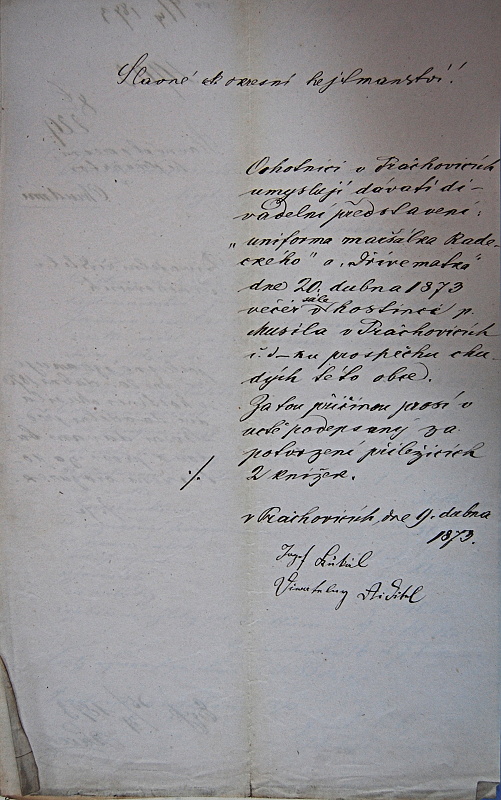 Slavné ck okresní hejtmanství!
Ochotníci v Práchovicích
umyslují dávati di-
vadelní představení:
„uniforma maršálka Rade-
ckého" a „Dříve matka"
dne 20. dubna 1873
večer v sále hostince p.
Musila v Práchovicích
č. 1 – ku prospěchu chu-
dých této obce.
Za tou příčinou prosí v
uctě podepsaný za
potvrzení příležících
./. 2 knížek.
v Práchovicích, dne 9. dubna
1873.
Josef